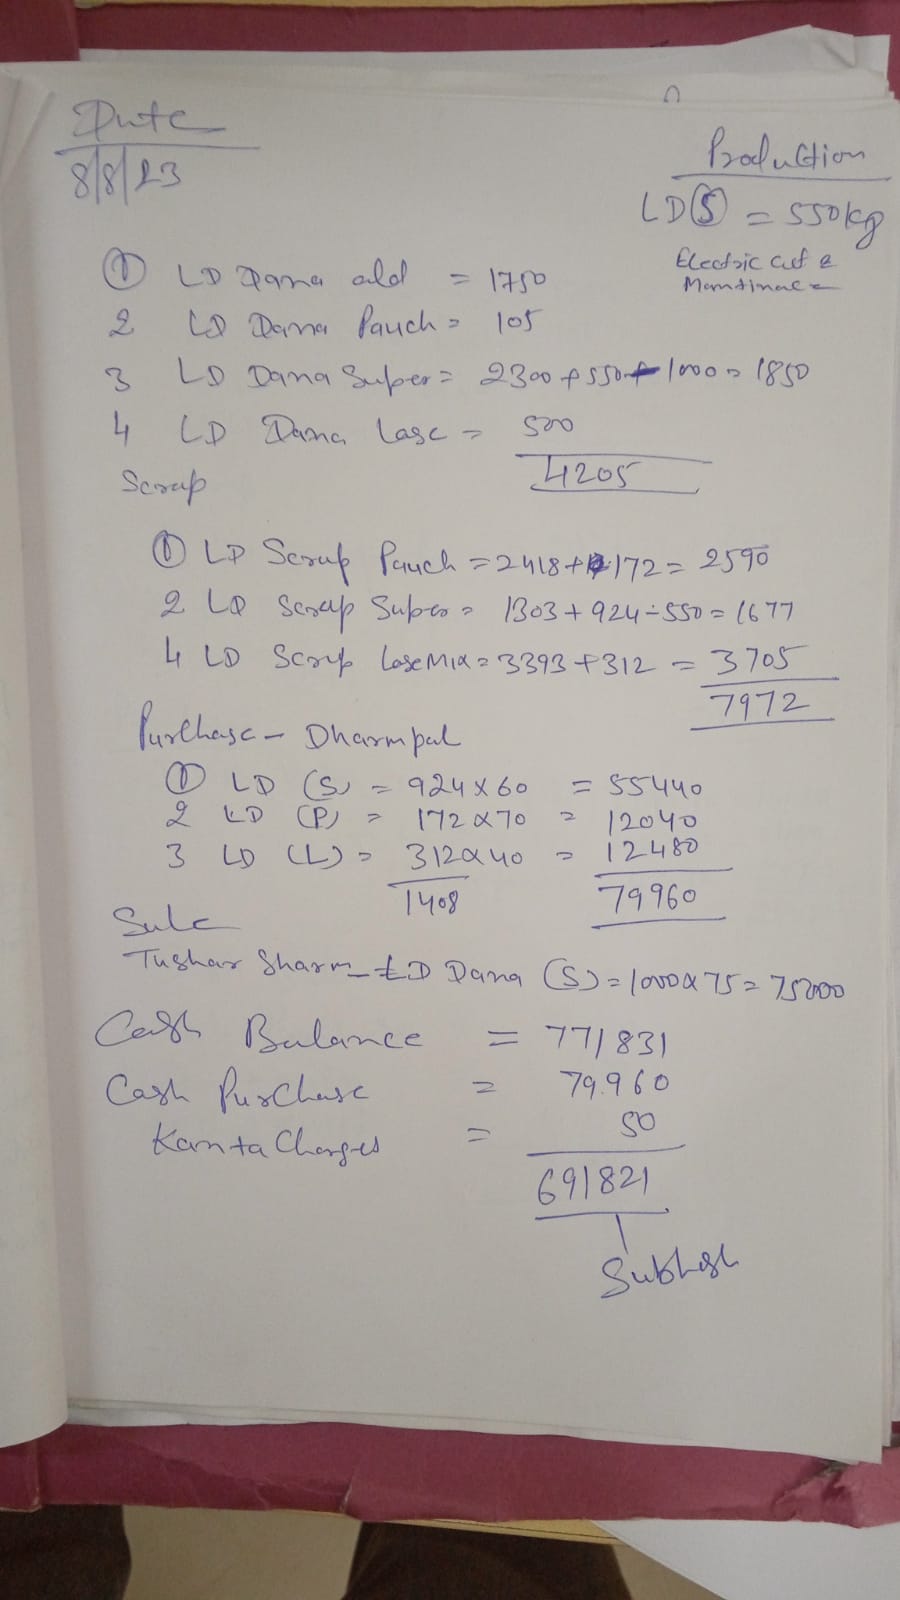 Date
8/8/23
Production
LD(S) = 550kg
Electric cut &
Mamtinace
① LD Dana old = 1750
2 LD Dana Pauch = 105
3 LD Dana Super = 2300 + 550 - 1000 = 1850
4 LD Dana Lase = 500
4205
Scrap
① LD Scrap Pauch = 2418 + 172 = 2590
2 LD Scrap Super = 1303 + 924 ÷ 550 = 1677
4 LD Scrap Lose Mix = 3393 + 312 = 3705
7972
Purchase - Dharmpal
① LD (S) = 924 x 60 = 55440
2 LD (P) = 172 x 70 = 12040
3 LD (L) = 312 x 40 = 12480
1408 79960
Sale
Tushar Sharm - LD Dana (S) = 1000 x 75 = 75000
Cash Balance = 771831
Cash Purchase = 79.960
Kanta Charges = 50
691821
Subhash